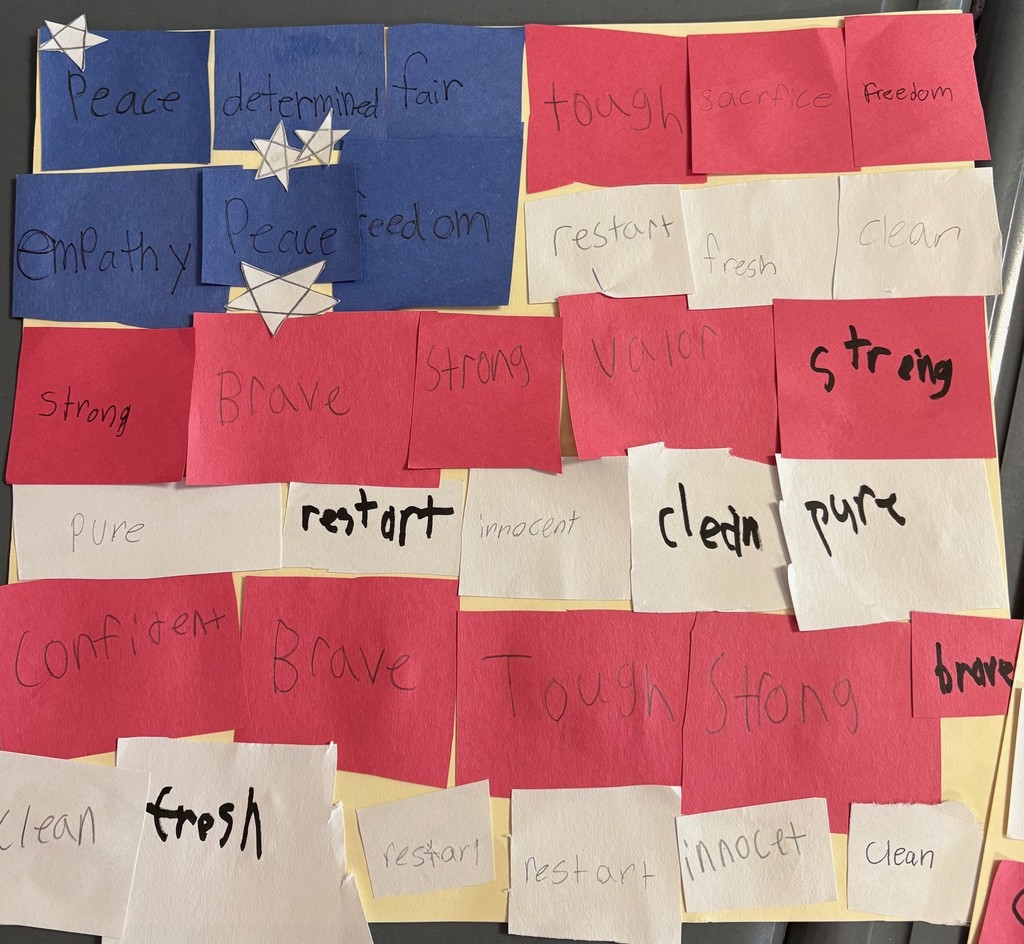 Peace determined fair tough sacrfice freedom
empathy Peace eedom restart fresh clean
Strong Brave Strong Valor streing
pure restart innocent clean pure
Confident Brave Tough Strong brave
clean fresh restart restart innocet clean